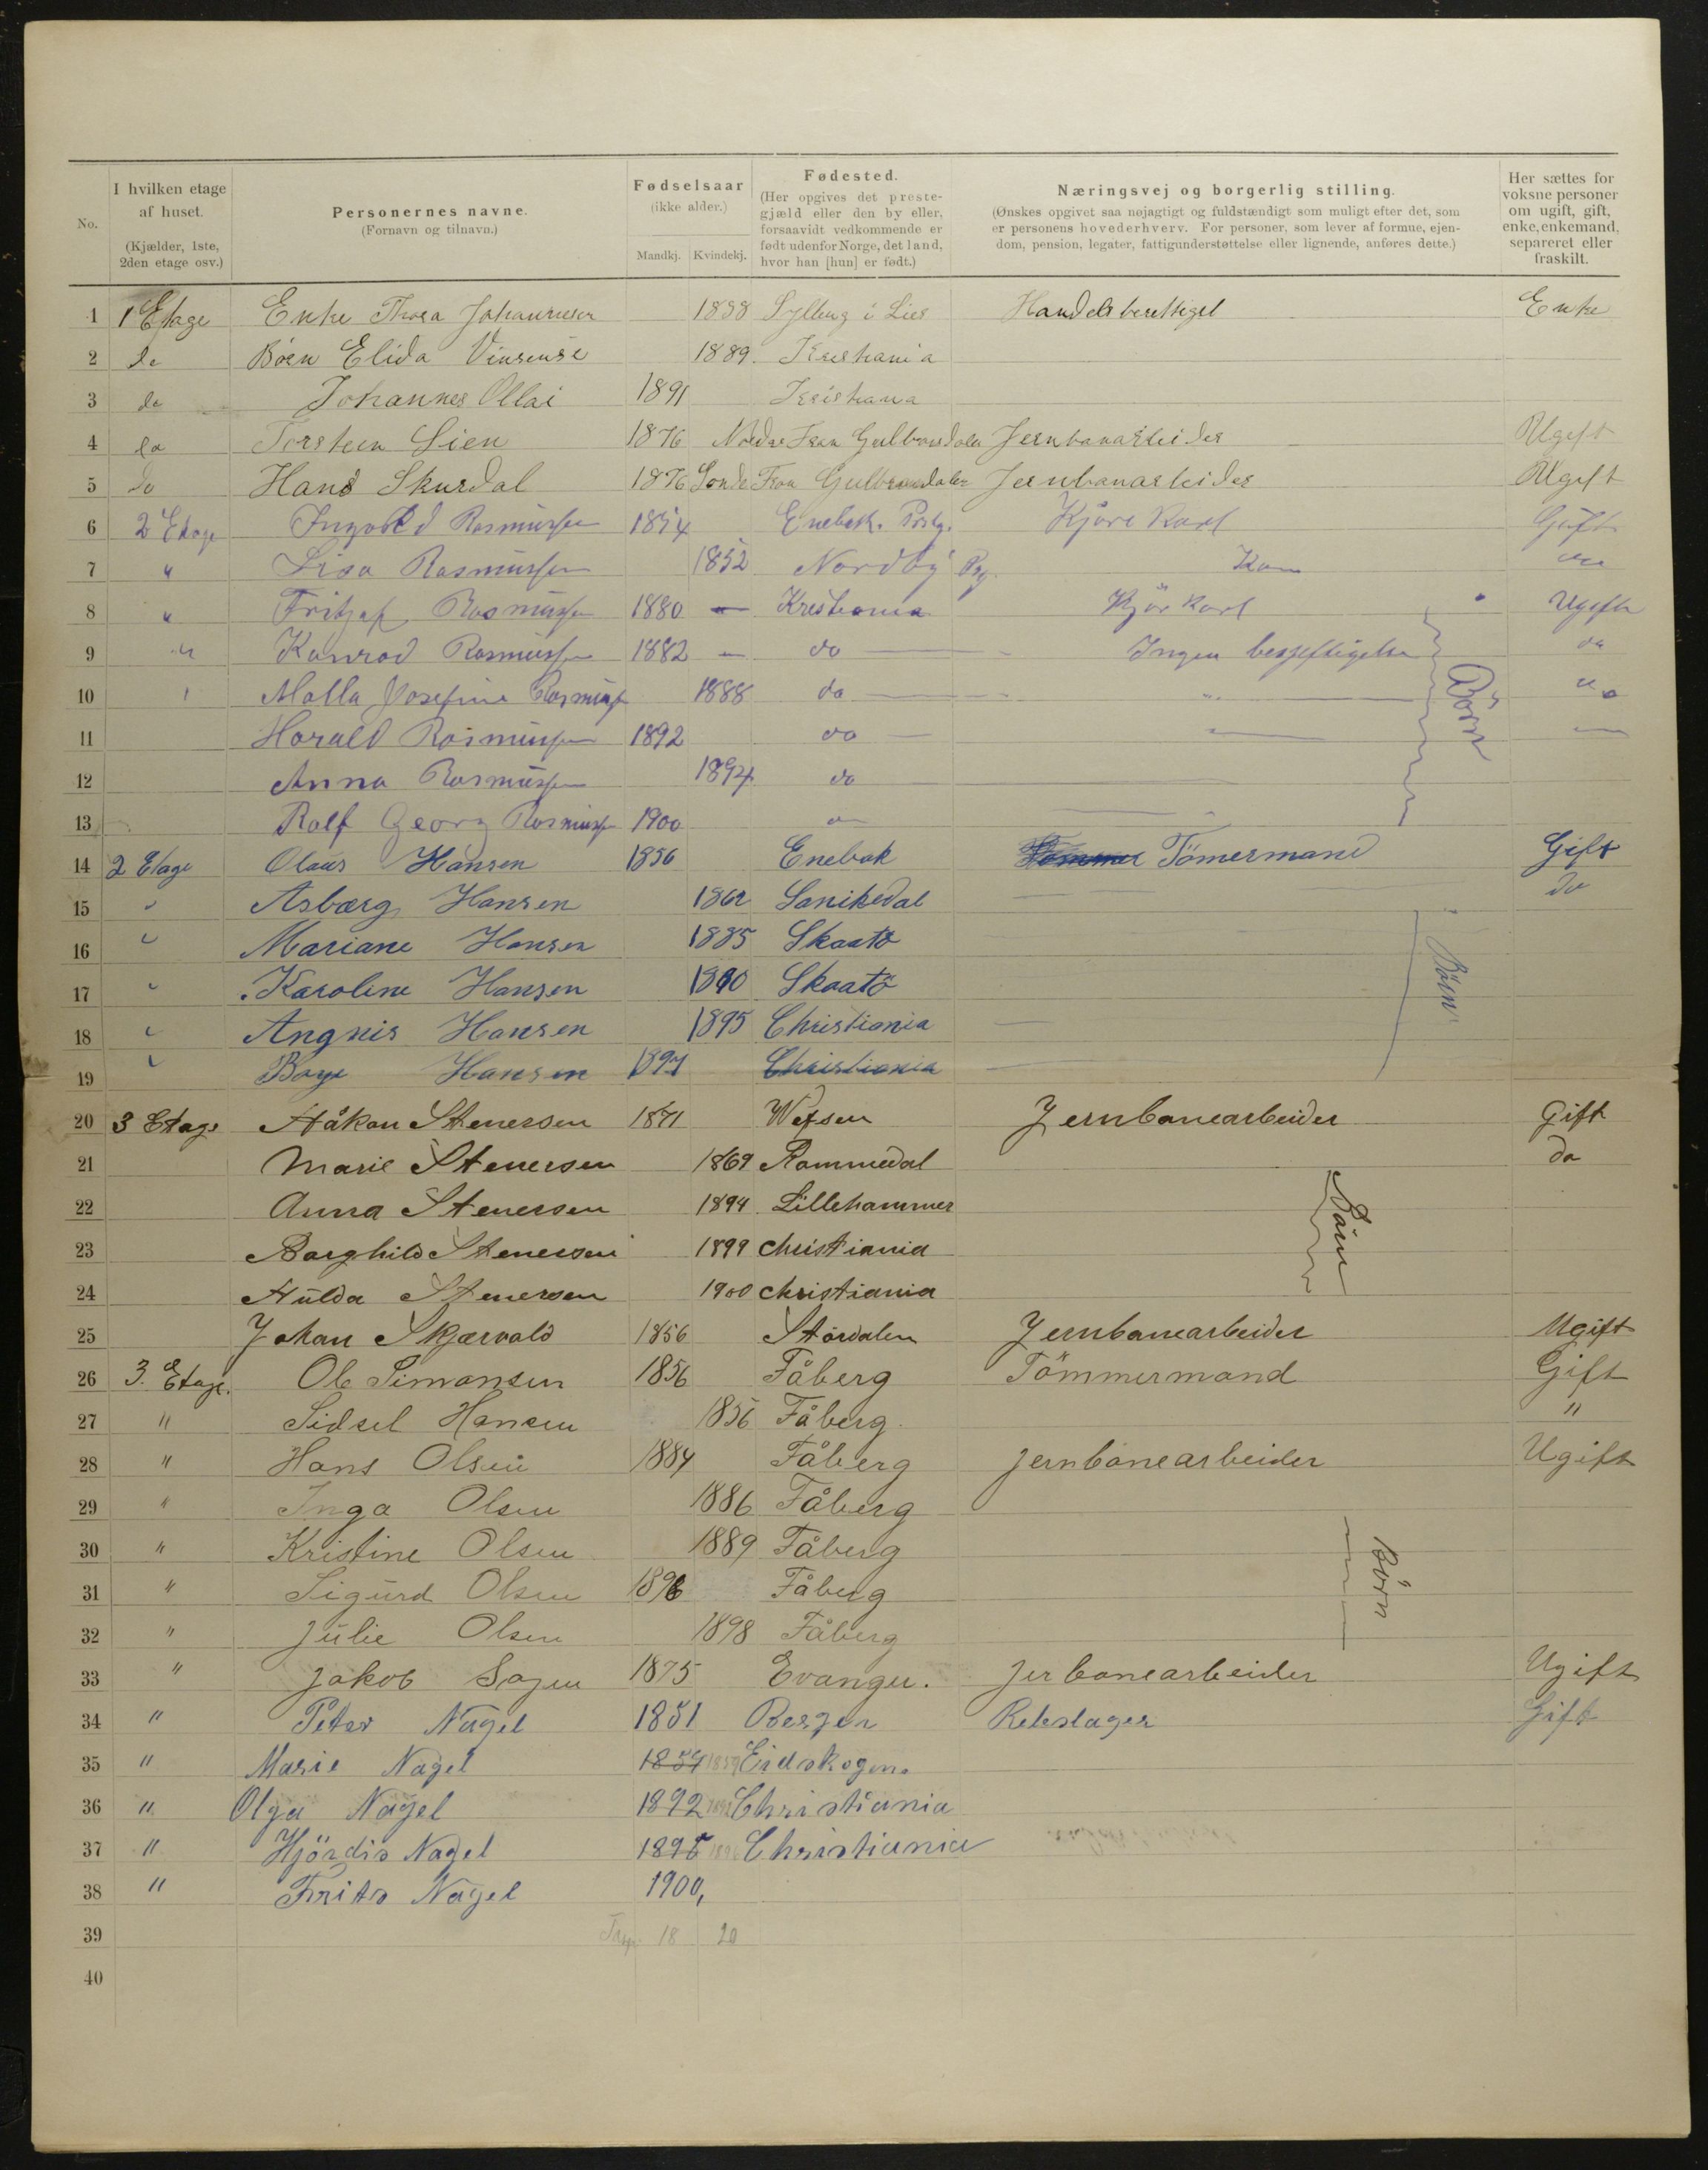 No.
I hvilken etage af huset.
(Kjælder, 1ste, 2den etage osv.)
Personernes navne.
(Fornavn og tilnavn.)
Fødselsaar
(ikke alder.)
Mandkj. Kvindekj.
Fødested.
(Her opgives det prestegjæld eller den by eller, forsaavidt vedkommende er født udenfor Norge, det land, hvor han [hun] er født.)
Næringsvej og borgerlig stilling.
(Ønskes opgivet saa nøjagtigt og fuldstændigt som muligt efter det, som er personens hovederhverv. For personer, som lever af formue, ejendom, pension, legater, fattigunderstøttelse eller lignende, anføres dette.)
Her sættes for voksne personer om ugift, gift, enke, enkemand, separeret eller fraskilt.
1 1 Etage Enke Thora Johannesen 1858 Sylling i Lier Handelsberettiget Enke
2 do Börn Elida Vinsense 1889. Kristiania
3 do Johannes Ollai 1891 Kristiana
4 do Torsten Lien 1876 Nordre Fron Gulbrandsdalen Jernbanarbeider Ugift
5 do Hans Skurdal 1876 Sonde Fron Gulbrandsdalen Jernbanarbeider Ugift
6 2 Etage Ingvold Rasmussen 1854 Enebak. Prstg. Kjöre Karl Gift
7 " Lisa Rasmussen 1852 Nordby Pg. Kone
8 " Fritjof Rasmussen 1880 — Kristiania Kjör Karl Ugift
9 " Konrad Rasmussen 1882 — do — Ingen besjeftigelse do
10 " Malla Josefine Rasmussen 1888 do — do
11 Harald Rasmussen 1892 do — —
12 Anna Rasmussen 1894 do
13 Rolf Georg Rasmussen 1900 do
Börn
14 2 Etage Olaus Hansen 1856 Enebak Tömmer Tömermand Gift
15 " Asbærg Hansen 1862 Sanikedal do
16 " Mariane Hansen 1885 Skaatö
17 " Karoline Hansen 1890 Skaatö
18 " Angnis Hansen 1895 Christiania
19 " Boye Hansen 1897 Christiania
Börn
20 3 Etage Håkon Stenersen 1871 Wefsen Jernbanearbeider Gift
21 Marie Stenersen 1869 Rommedal do
22 Anna Stenersen 1894 Lillehammer
23 Borghild Stenersen 1899 Christiania
24 Hulda Stenersen 1900 Christiania
Börn
25 Johan Skjærvold 1856 Stördalen Jernbanearbeider Ugift
26 3. Etage. Ole Simonsen 1856 Fåberg Tömmermand Gift
27 " Sidsel Hansen 1856 Fåberg. "
28 " Hans Olsen 1884 Fåberg Jernbanearbeider Ugift
29 " Inga Olsen 1886 Fåberg
30 " Kristine Olsen 1889 Fåberg
31 " Sigurd Olsen 1896 Fåberg
32 " Julie Olsen 1898 Fåberg
Börn
33 " Jakob Sagen 1875 Evanger. Jerbanearbeider Ugift
34 " Peter Nagel 1851 Bergen Rebslager Gift
35 " Marie Nagel 1859 1859 Eidskogen.
36 " Olga Nagel 1892 1892 Christiania
37 " Hjördis Nagel 1896 1896 Christiania
38 " Frits Nagel 1900,
39 18 20
40